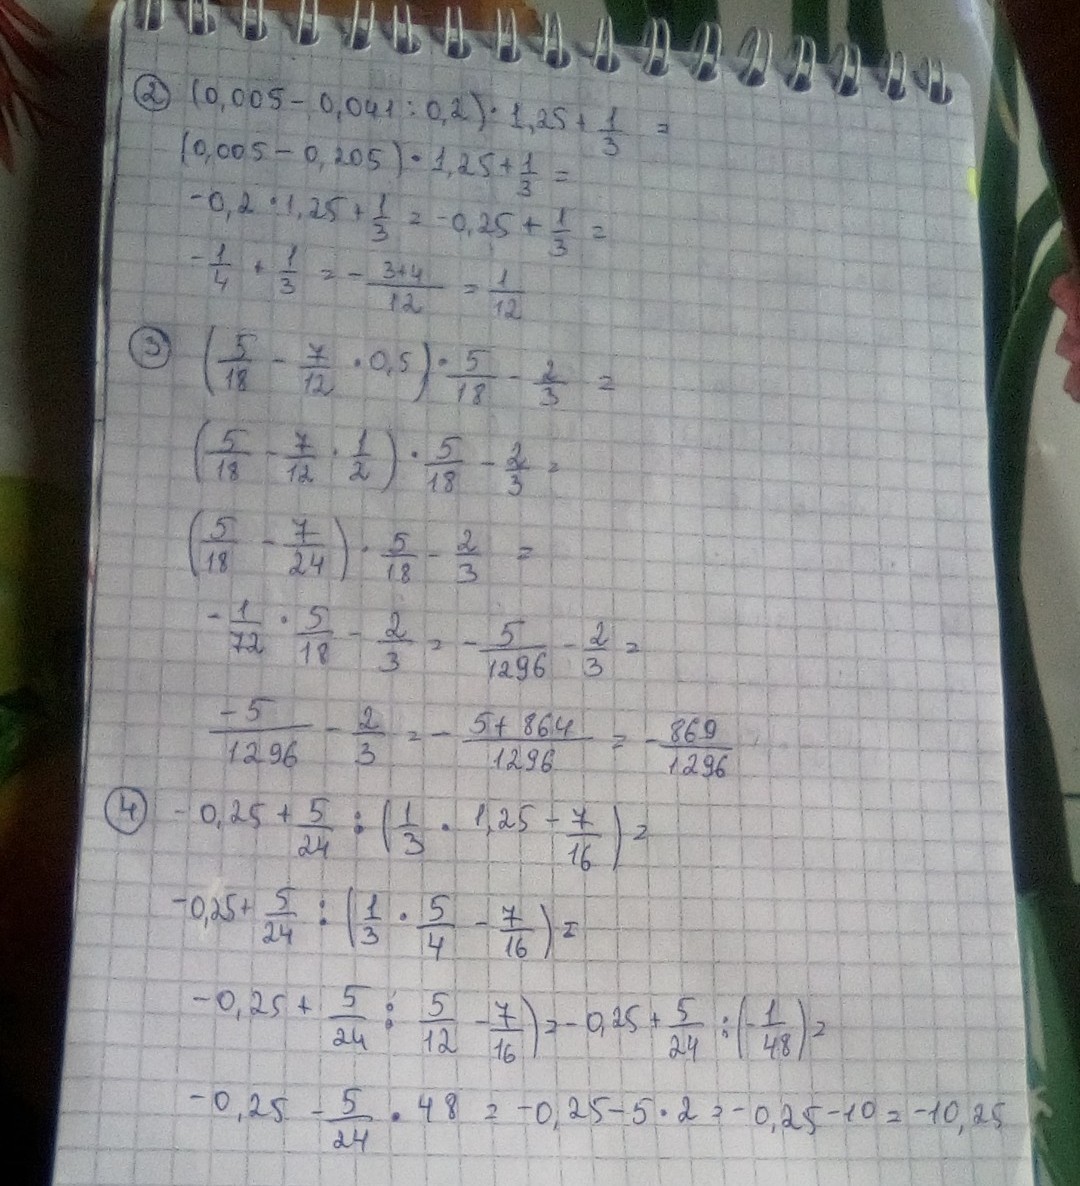 ② (0,005 - 0,041 : 0,2) · 1,25 + 1/3 =
(0,005 - 0,205) · 1,25 + 1/3 =
-0,2 · 1,25 + 1/3 = -0,25 + 1/3 =
-1/4 + 1/3 = - (3+4)/12 = 1/12
③ (5/18 - 7/12 · 0,5) · 5/18 - 2/3 =
(5/18 - 7/12 · 1/2) · 5/18 - 2/3 =
(5/18 - 7/24) · 5/18 - 2/3 =
-1/72 · 5/18 - 2/3 = - 5/1296 - 2/3 =
-5/1296 - 2/3 = - (5+864)/1296 = - 869/1296
④ -0,25 + 5/24 : (1/3 · 1,25 - 7/16) =
-0,25 + 5/24 : (1/3 · 5/4 - 7/16) =
-0,25 + 5/24 : 5/12 - 7/16) = -0,25 + 5/24 : (-1/48) =
-0,25 - 5/24 · 48 = -0,25 - 5 · 2 = -0,25 - 10 = -10,25